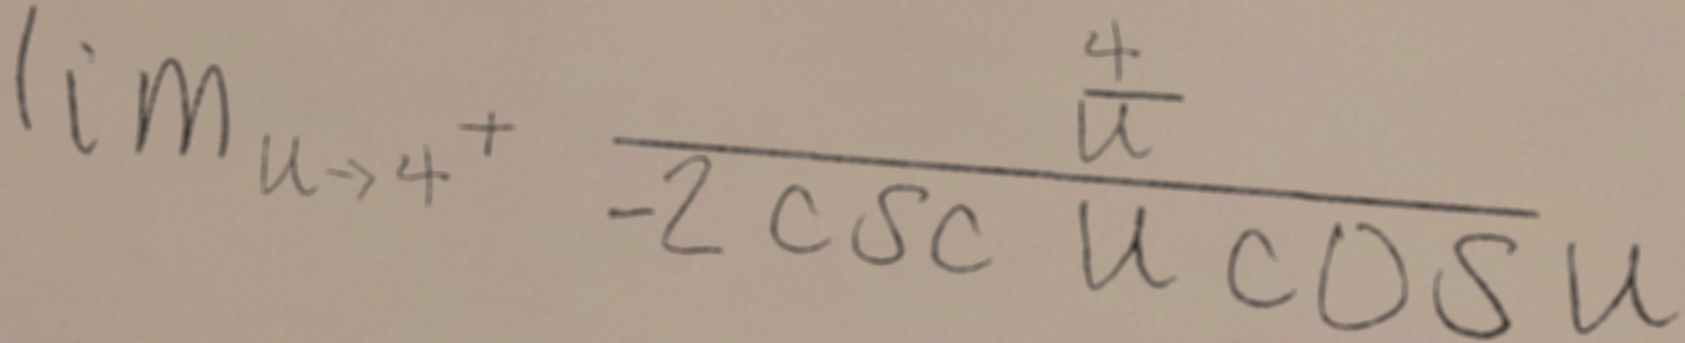 \lim_{u \to 4^+} \frac{\frac{4}{u}}{-2 \csc u \cos u}